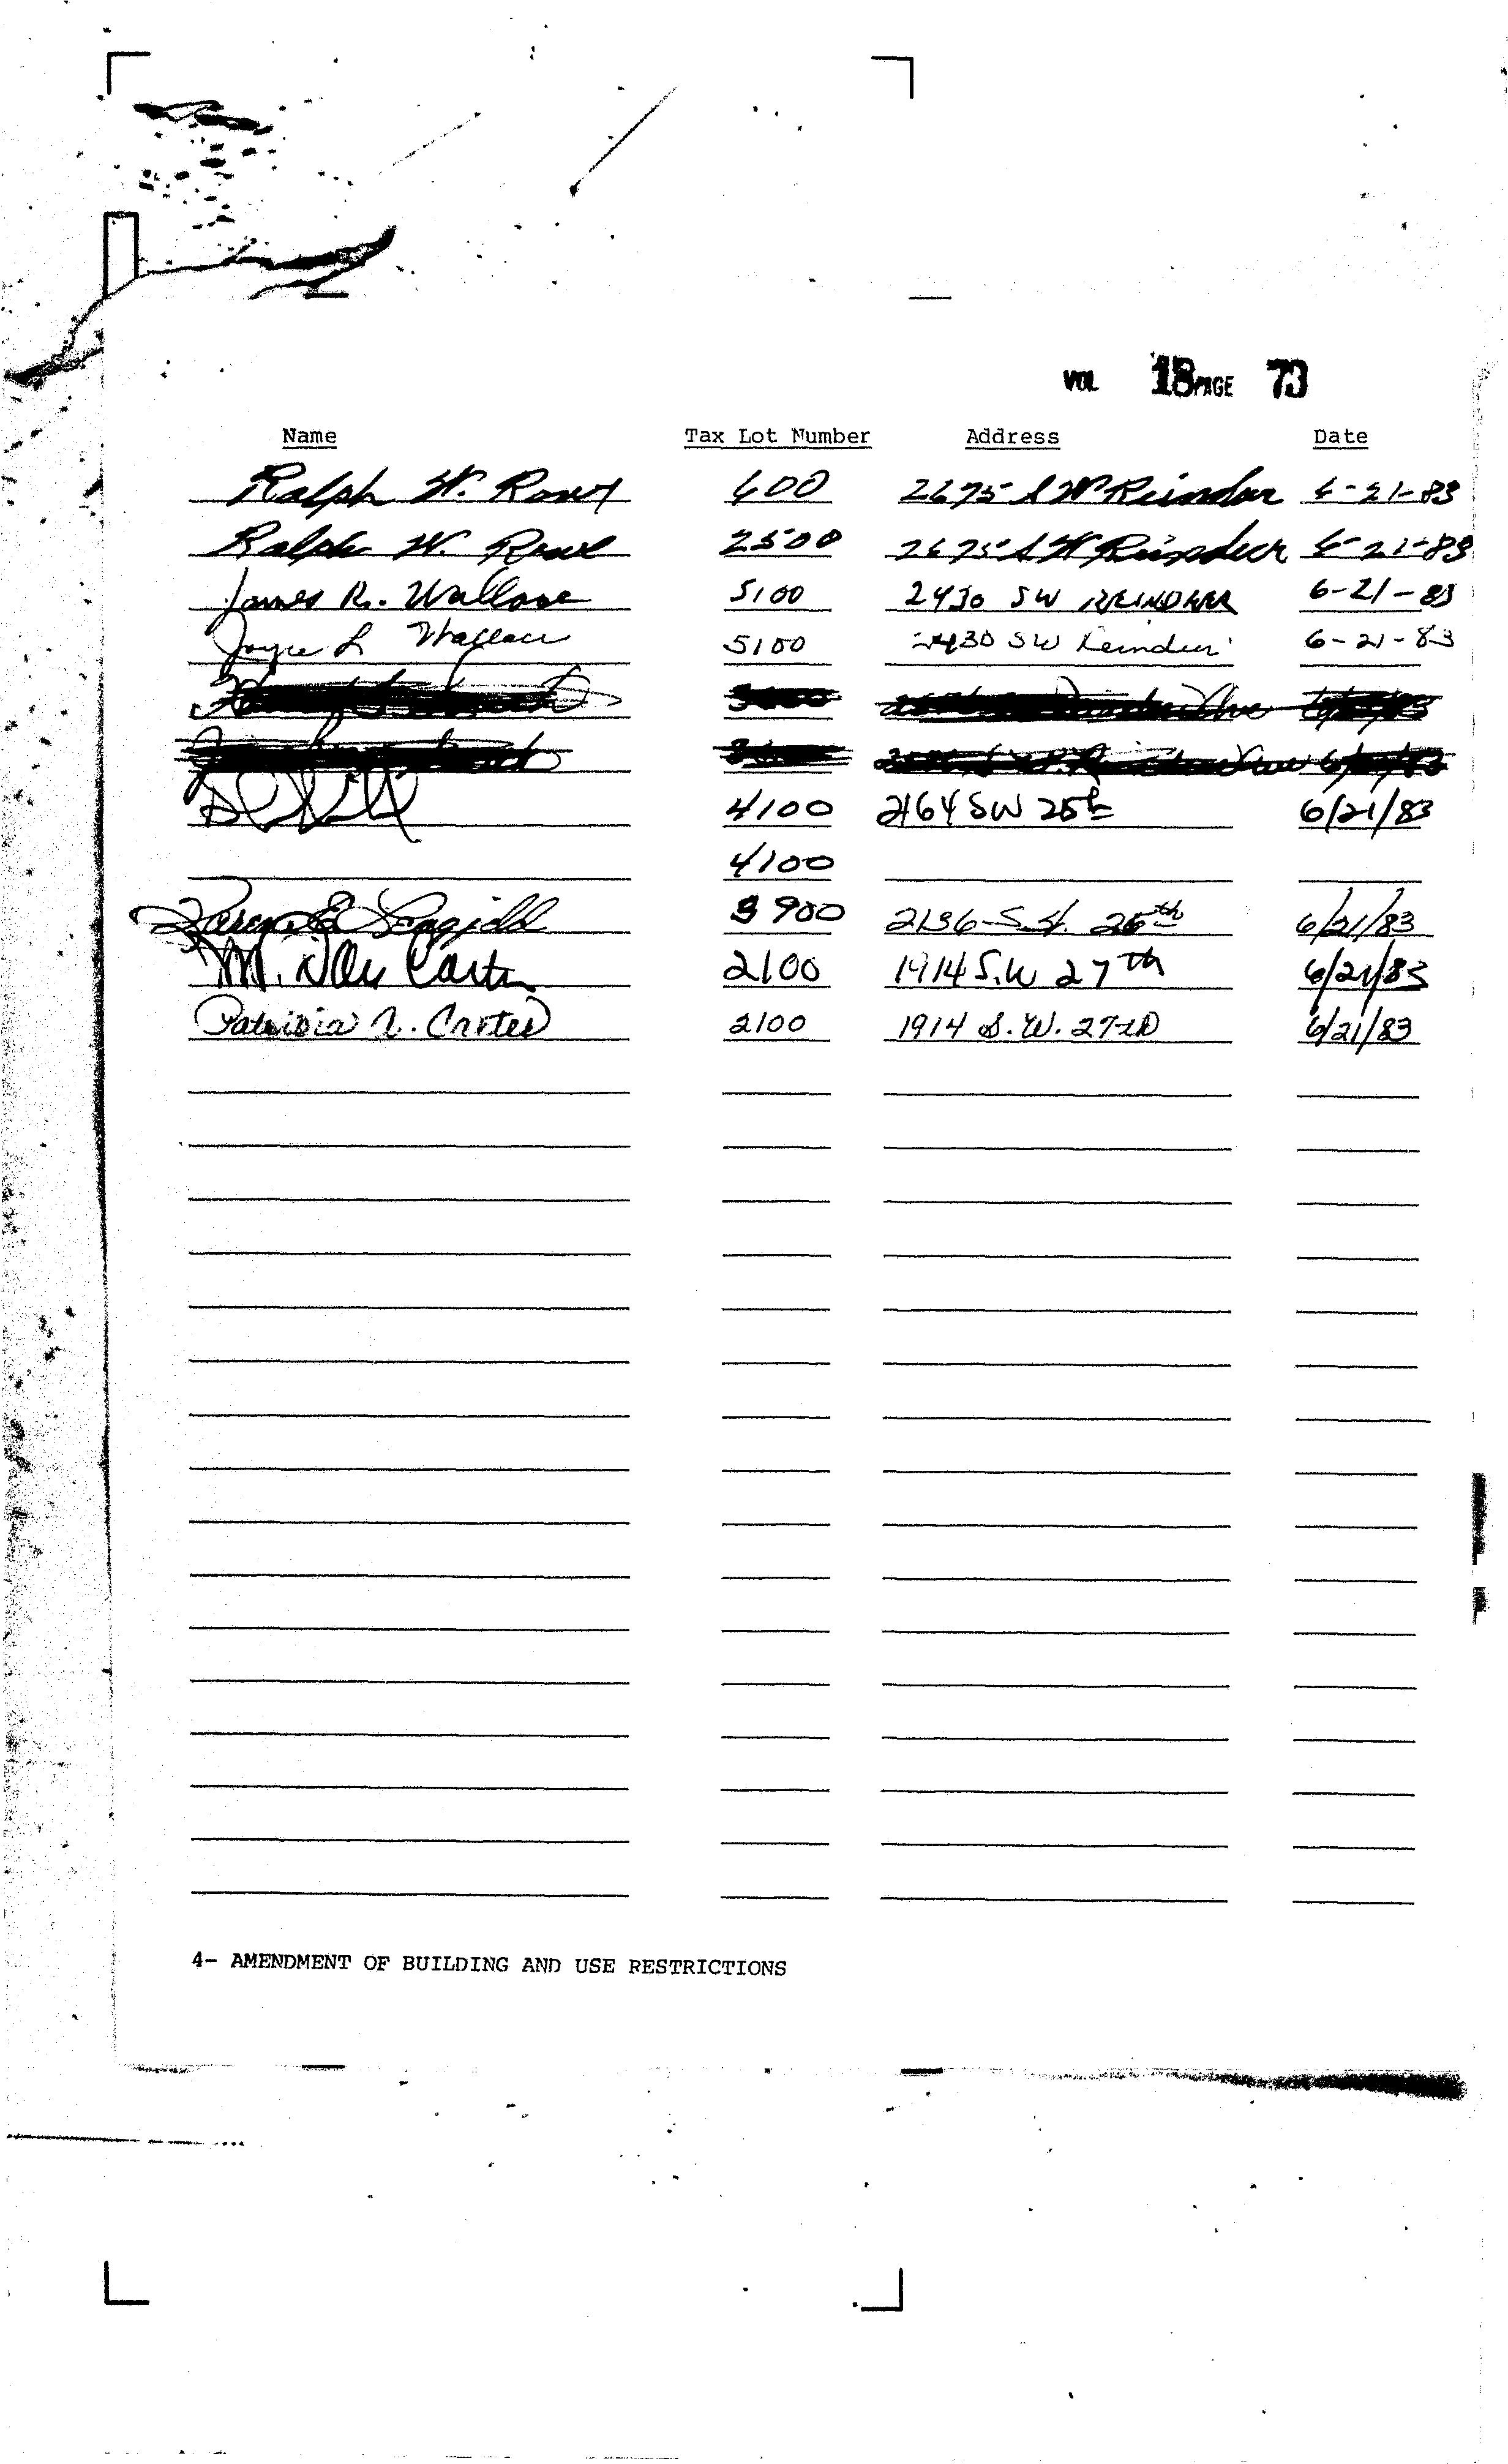 VOL 18 PAGE 73
Name Tax Lot Number Address Date
Ralph W. Rowe 600 2675 S W Reindeer 6-21-83
Ralph W. Rowe 2500 2675 S W Reindeer 6-21-83
James R. Wallace 5100 2430 SW REINDEER 6-21-83
Joyce L Wallace 5100 2430 SW Reindeer 6-21-83
4100 2164 SW 25th 6/21/83
4100
Karen E 3900 2136 S.W. 26th 6/21/83
M. Dale Carter 2100 1914 S.W 27th 6/21/83
Patricia A. Carter 2100 1914 S.W. 27th 6/21/83
4- AMENDMENT OF BUILDING AND USE RESTRICTIONS